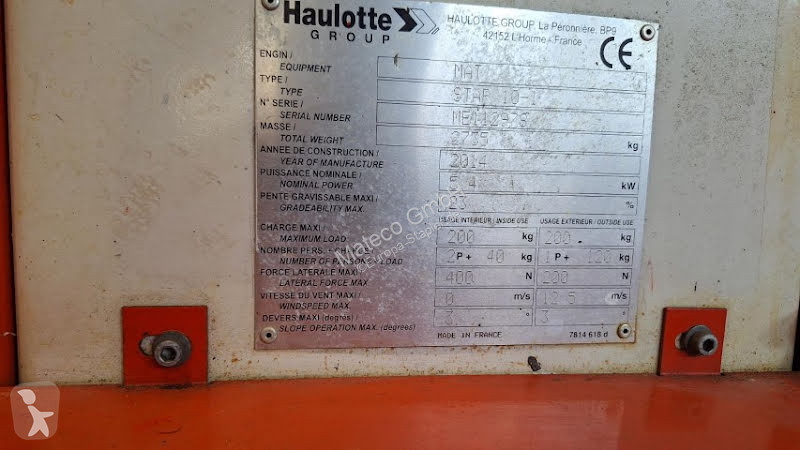 Haulotte
GROUP
HAULOTTE GROUP, La Péronnière, BP9
42152 L'Horme - France
CE
ENGIN /
EQUIPMENT
MAT
TYPE /
TYPE
STAR 10-1
N° SERIE /
SERIAL NUMBER
MASSE /
TOTAL WEIGHT
2755 kg
ANNEE DE CONSTRUCTION /
YEAR OF MANUFACTURE
2014
PUISSANCE NOMINALE /
NOMINAL POWER
5.4 kW
PENTE GRAVISSABLE MAXI /
GRADEABILITY MAX.
23 %
USAGE INTERIEUR / INSIDE USE USAGE EXTERIEUR / OUTSIDE USE
CHARGE MAXI /
MAXIMUM LOAD
200 kg 200 kg
NOMBRE PERS. + CHARGE /
NUMBER OF PERSONS / LOAD
2 P + 40 kg 1 P + 120 kg
FORCE LATERALE MAXI /
LATERAL FORCE MAX
400 N 200 N
VITESSE DU VENT MAXI /
WINDSPEED MAX.
0 m/s 12.5 m/s
DEVERS MAXI (degrés) /
SLOPE OPERATION MAX. (degrees)
3 ° 3 °
MADE IN FRANCE 7814 618 d
Mateco GmbH